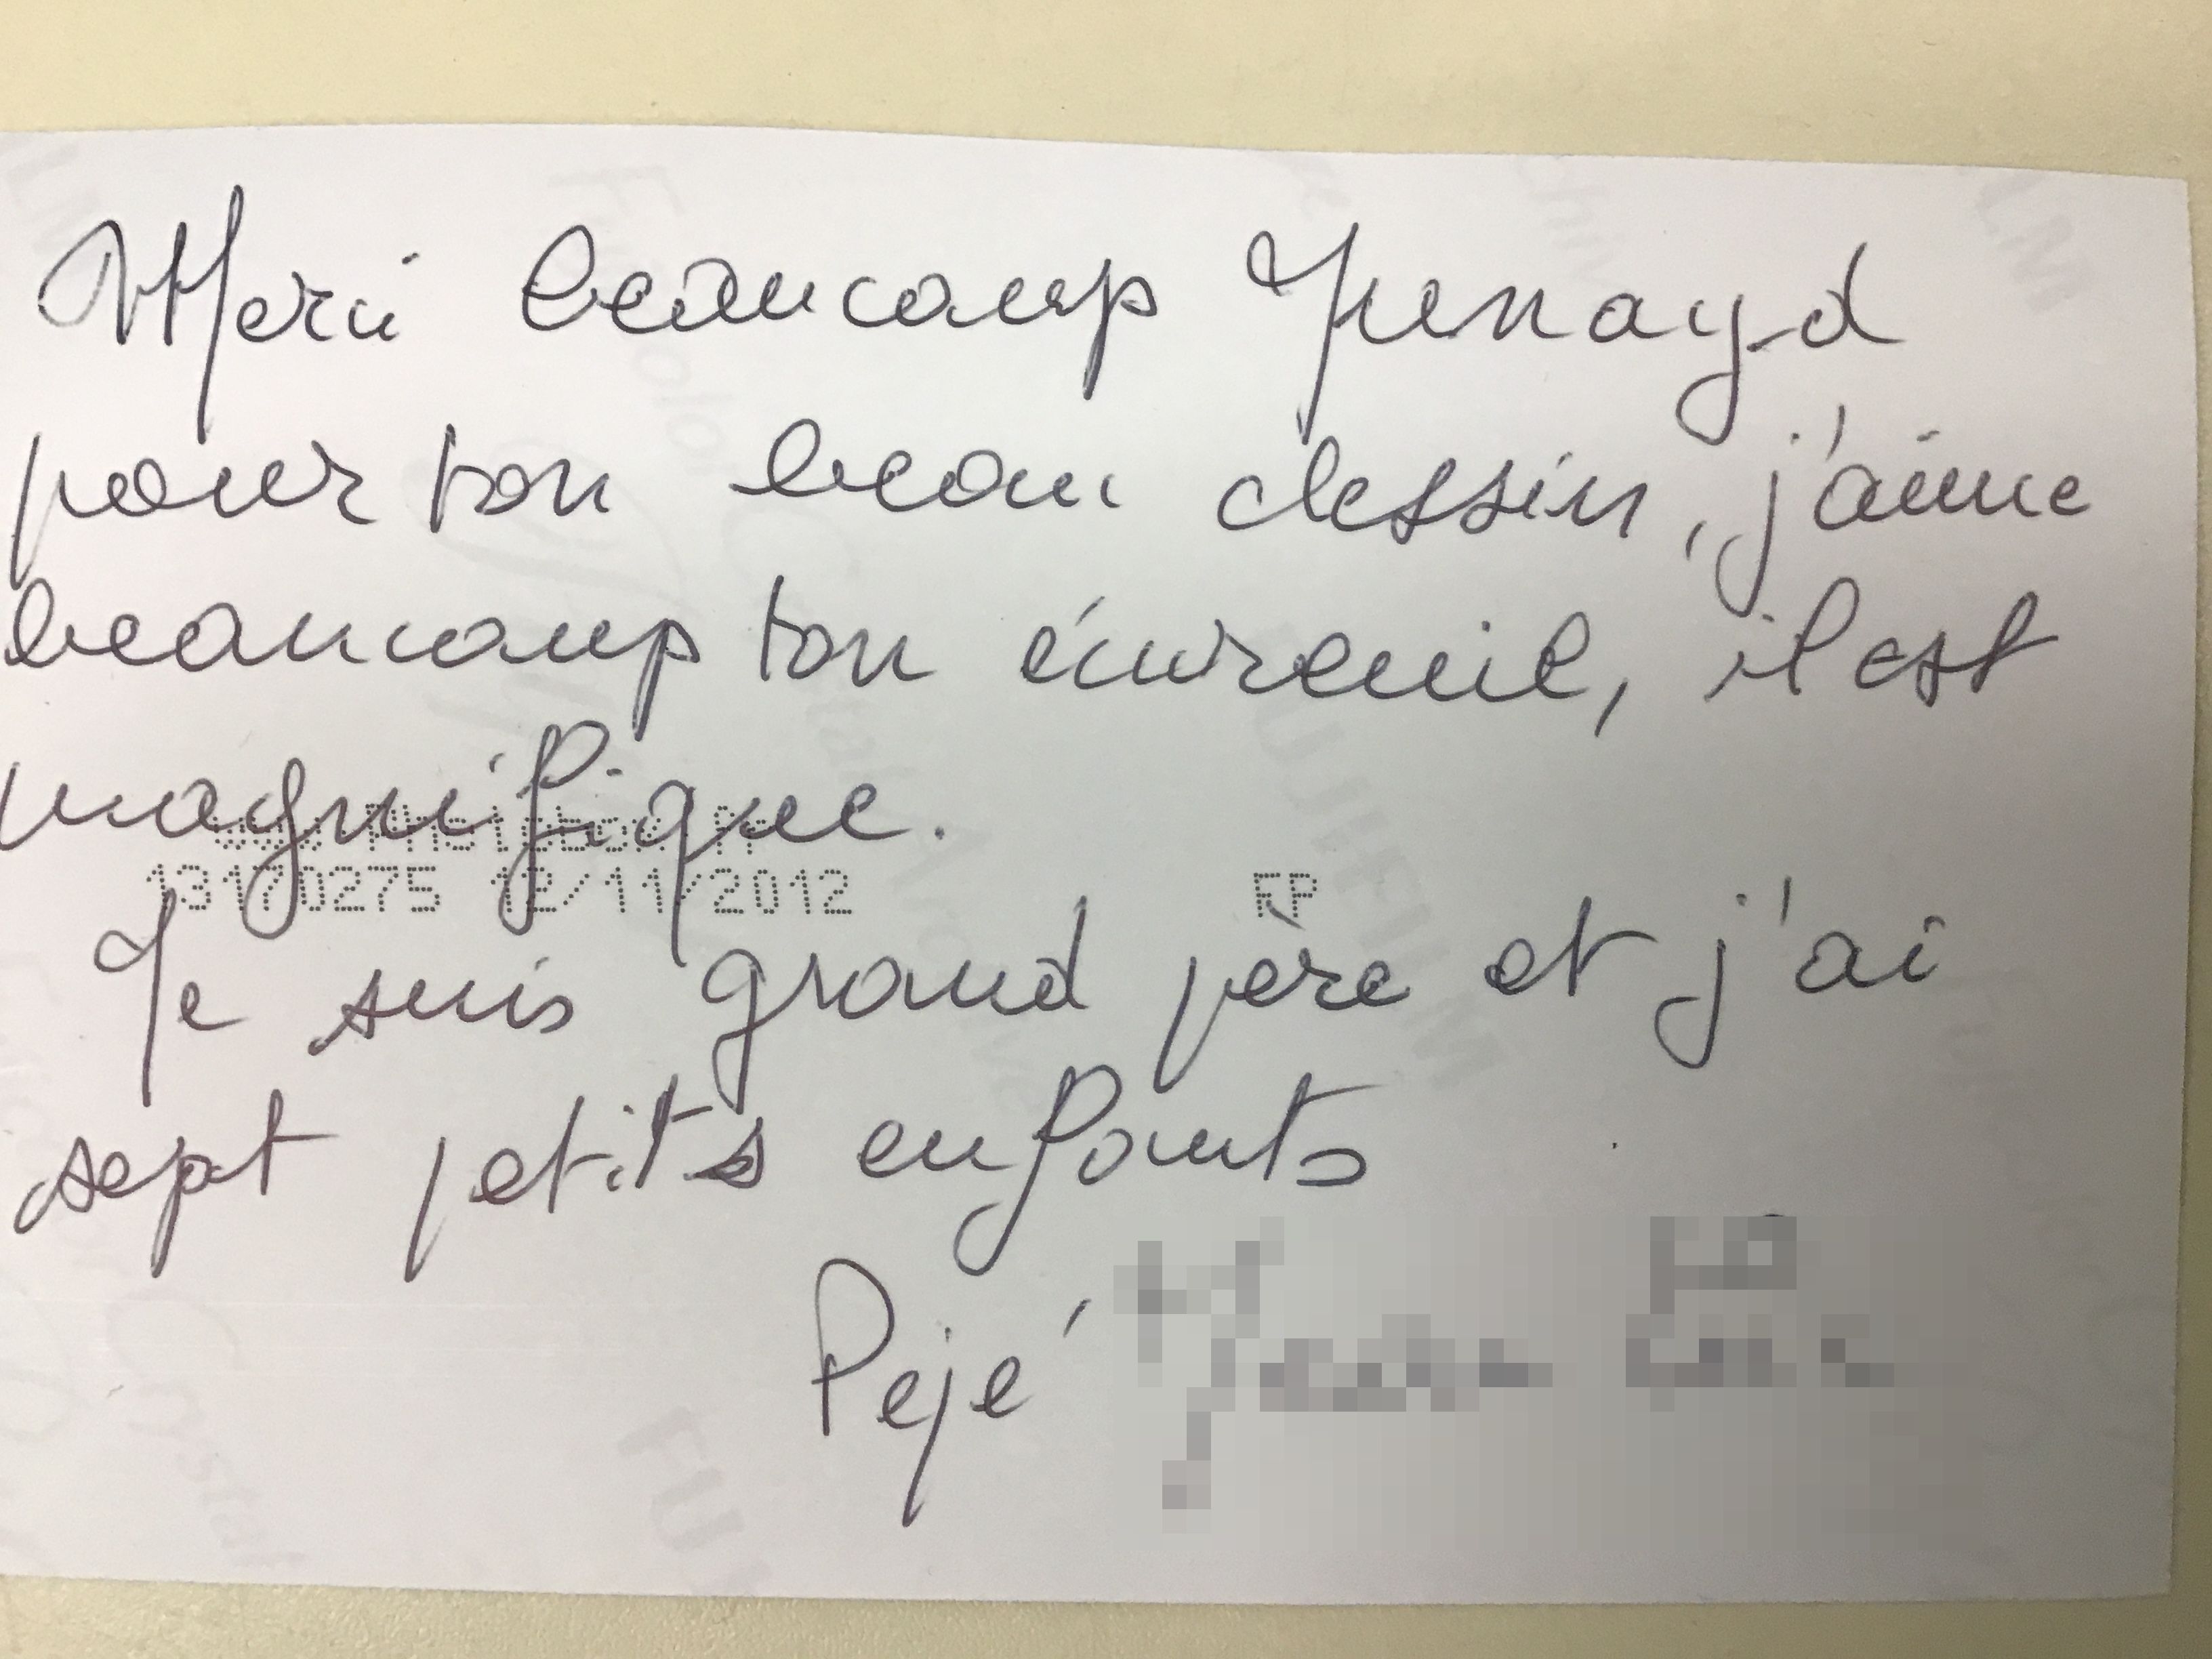 Merci beaucoup Junayd
pour ton beau dessin, j'aime
beaucoup ton écureuil, il est
magnifique.
13170275 12/11/2012 FP
Je suis grand père et j'ai
sept petits enfants
Pejé